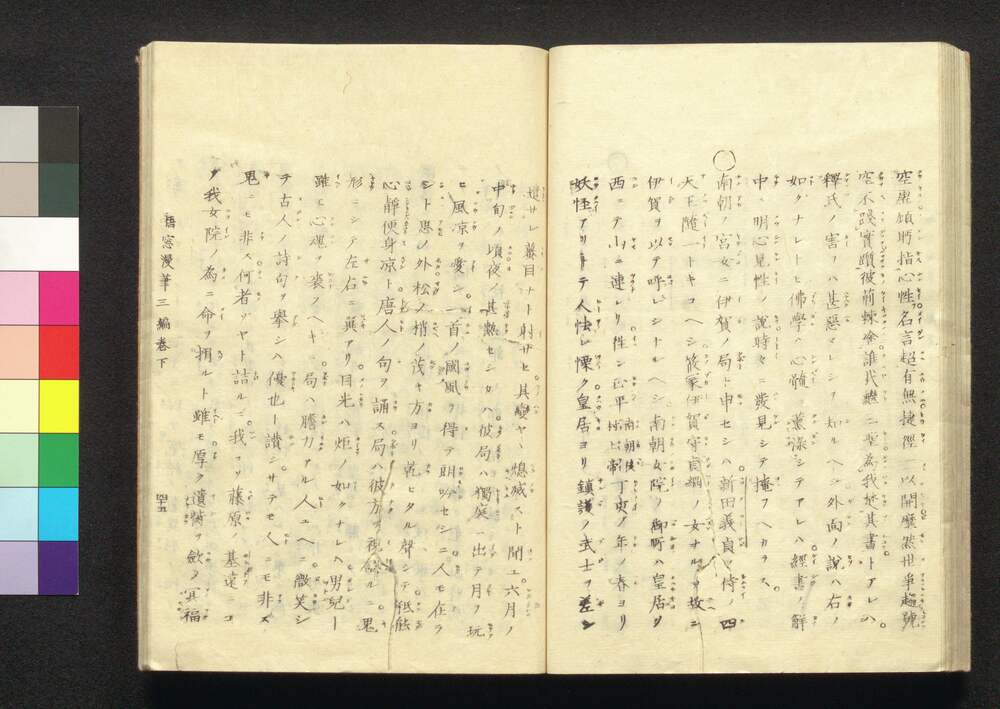 空虚頌眄指心性名言超有無捷徑一以開靡然世爭趨號
空不踐實躓彼荊榛塗誰氏繼二聖為我焚其書トアレハ
釋氏ノ害ヲハ甚惡マレシヲ知ルヘシ外向ノ説ハ右ノ
如クナレトモ佛學ハ心髓ニ薫染シテアレハ經書ノ解
中ニ明心見性ノ説時々ニ發見シテ掩フヘカラス
○
南朝ノ宮女ニ伊賀ノ局ト申セシハ新田義貞ノ侍ノ四
天王随一トキコヘシ篠塚伊賀守貞綱ノ女ナルカ故ニ
伊賀ヲ以テ呼レシトルヘシ南朝女院ノ御所ハ皇居ノ
西ニテ山ニ連レリ件ン正平南朝後村上帝丁亥ノ年ノ春ヨリ
妖怪アリ事テ人怯レ慄ク皇居ヨリ鎮護ノ武士ヲ差シ
遣サレ蟇目ナト射サセ其變ヤヽ熄滅スト聞エ六月ノ
中旬ノ頃夜ハ甚熱セシカハ彼局ハ獨庭ニ出テ月ヲ玩
ヒ風凉ヲ愛シ一首ノ國風ヲ得テ朗吟セシニ人モ在ラ
シト思ノ外松ノ梢ノ茂キ方ヨリ乾ヒタル聲シテ秪能
心靜便身凉ト唐人ノ句ヲ誦ス局ハ彼方ヲ視ルニ鬼
形ニシテ左右ニ翼アリ目光ハ炬ノ如クナレハ男兒ト
雖モ心魂ヲ喪ノヘキニ局ハ膽力アル人ユヘニ微笑シ
テ古人ノ詩句ヲ擧シハ優也ト讃シサテモ人ニモ非ス
鬼ニモ非ス何者ソヤト詰ルニ我コソ藤原ノ基遠ニコ
ソ我女院ノ為ニ命ヲ捐ルト雖モ厚ク遺骸ヲ斂ヌ其福
梧窓漫筆三編卷下
四十五